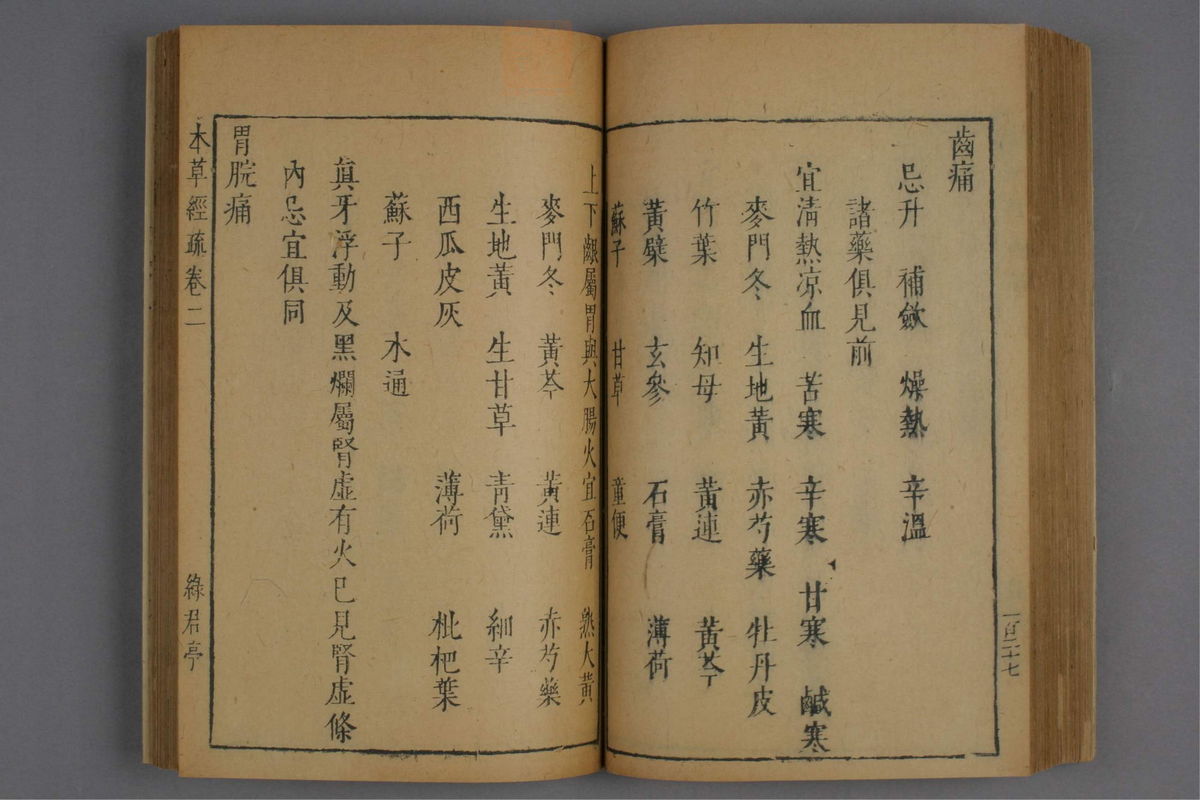 齒痛
忌升 補斂 燥熱 辛溫
諸藥俱見前
宜清熱凉血 苦寒 辛寒 甘寒 鹹寒
麥門冬 生地黃 赤芍藥 牡丹皮
竹葉 知母 黃連 黃芩
黃檗 玄參 石膏 薄荷
蘇子 甘草 童便
一百二十七
上下齦屬胃與大腸火宜石膏 熟大黃
麥門冬 黃芩 黃連 赤芍藥
生地黃 生甘草 青黛 細辛
西瓜皮灰 薄荷 枇杷葉
蘇子 木通
眞牙浮動及黑爛屬腎虛有火已見腎虛條
內忌宜俱同
胃脘痛
本草經疏卷二 綠君亭